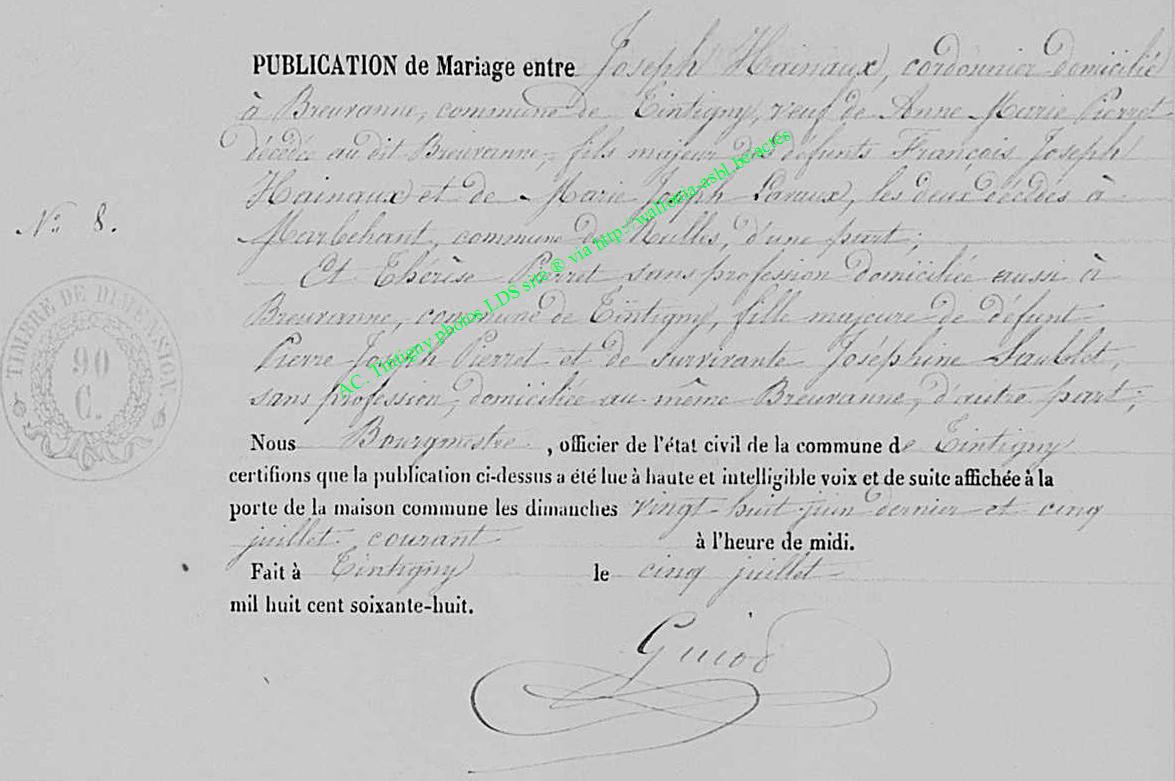 PUBLICATION de Mariage entre Joseph Hainaux, cordonnier domicilié
à Breuvanne, commune de Tintigny, veuf de Anne Marie Pierret
décédée au dit Breuvanne, fils majeur des défunts François Joseph
Hainaux et de Marie Joseph Laroux, les deux décédés à
Marbehant, commune de Rulles, d'une part;
N° 8.
Et Thérèse Pierret sans profession domiciliée aussi à
Breuvanne, commune de Tintigny, fille majeure de défunt
Pierre Joseph Pierret et de survivante Joséphine
sans profession, domiciliée au même Breuvanne, d'autre part;
TIMBRE DE DIMENSION.
90
C.
AC. Tintigny photos LDS site ® via http://wallonia-asbl.be actes
Nous Bourgmestre, officier de l'état civil de la commune de Tintigny
certifions que la publication ci-dessus a été lue à haute et intelligible voix et de suite affichée à la
porte de la maison commune les dimanches vingt-huit juin dernier et cinq
juillet courant à l'heure de midi.
Fait à Tintigny le cinq juillet
mil huit cent soixante-huit.
Guiod